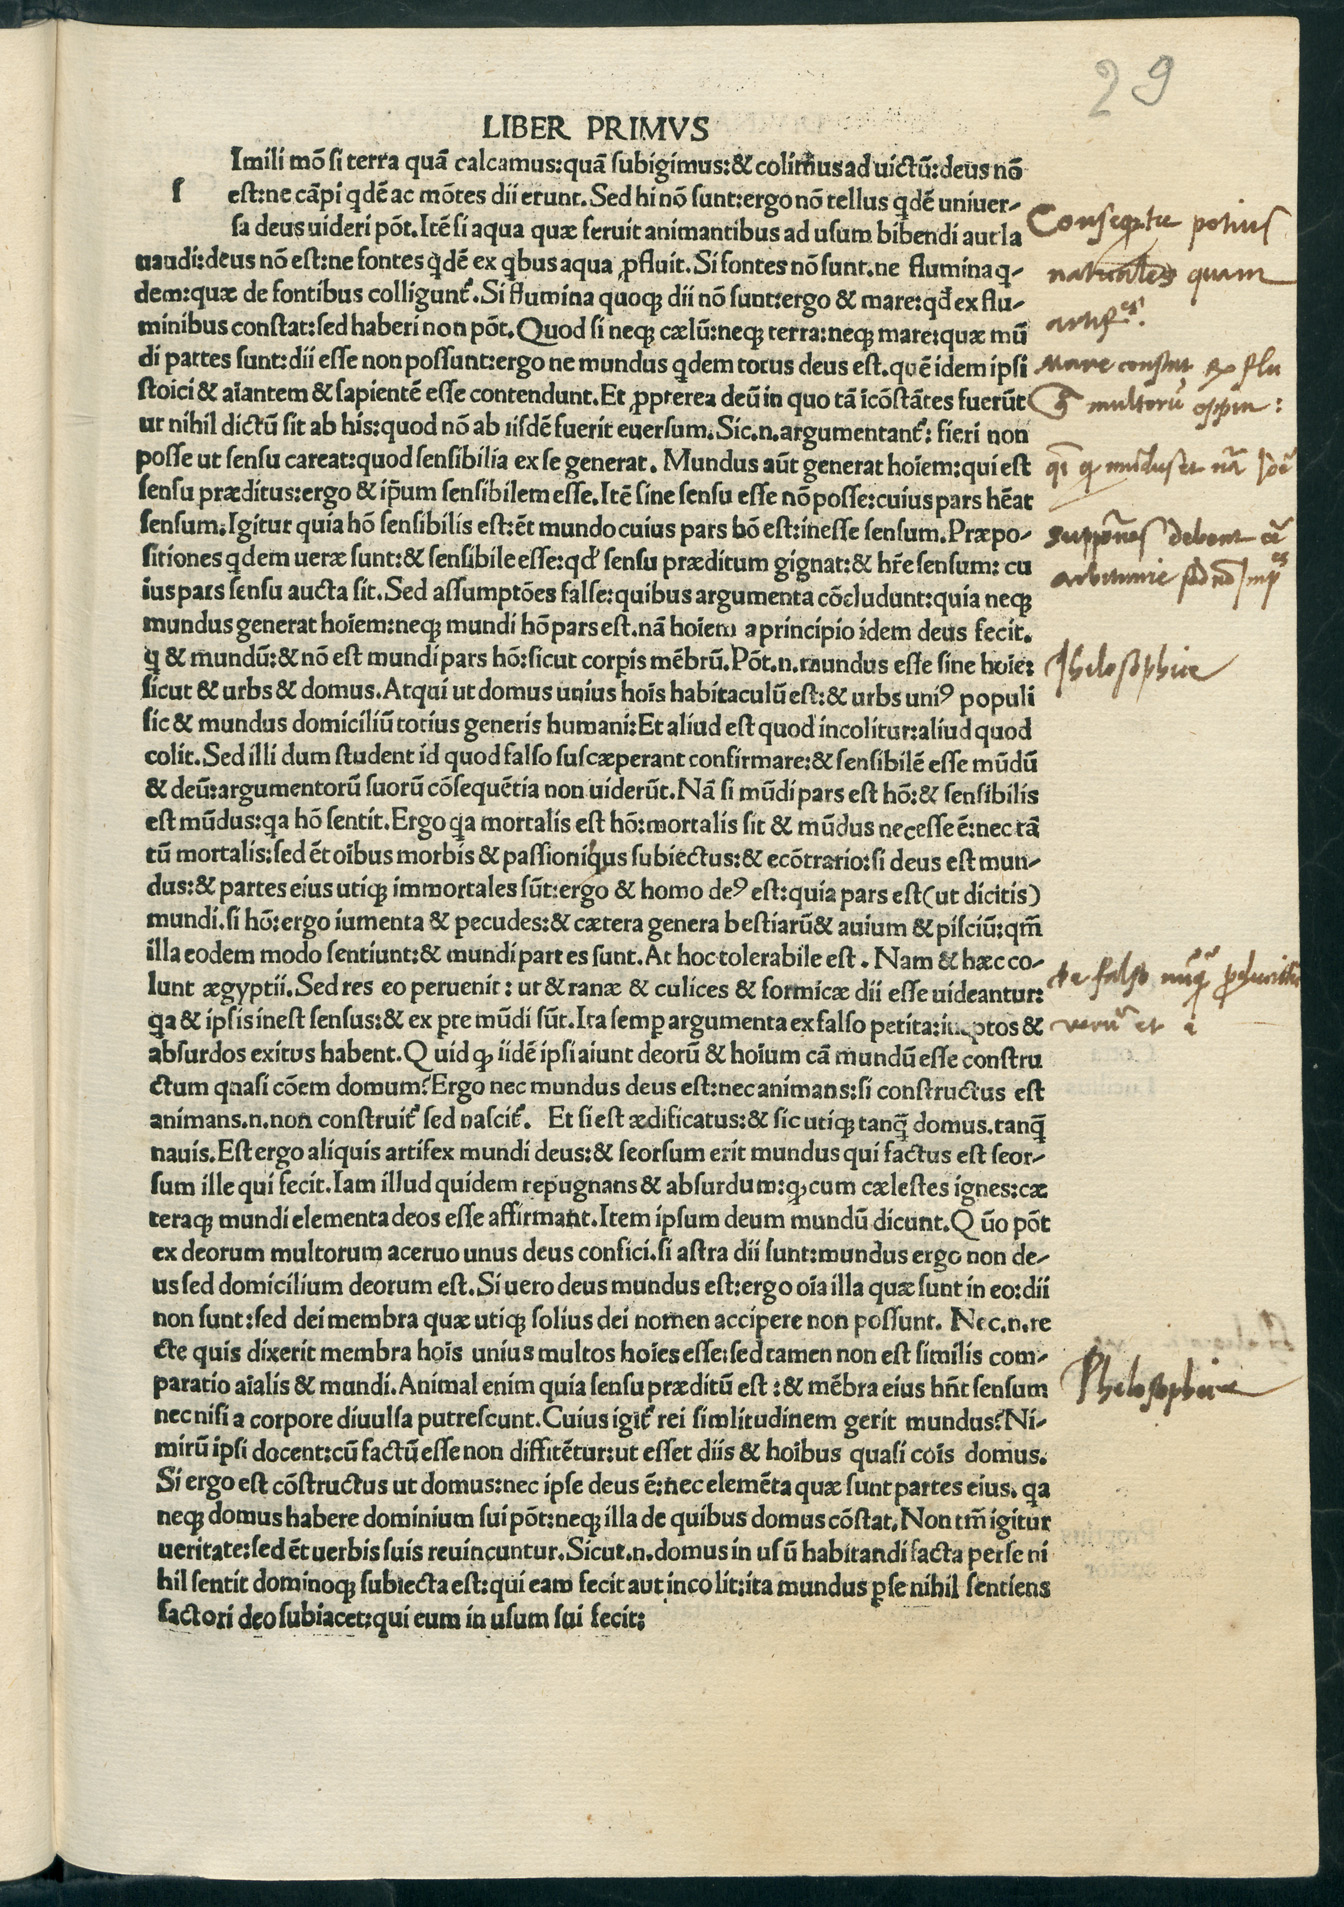 29
LIBER PRIMVS
Imili mō si terra quā calcamus:quā subigimus:& colimus ad uictū:deus nō
ſ est:ne cāpi qdē ac mōtes dii erunt. Sed hi nō sunt:ergo nō tellus qdē uniuer-
sa deus uideri pōt. Itē si aqua quæ seruit animantibus ad usum bibendi aut la
uandi:deus nō est:ne fontes qdē ex qbus aqua ꝓfluit. Si fontes nō sunt.ne flumina q-
dem:quæ de fontibus colligunt᷑. Si flumina quoqꝫ dii nō sunt:ergo & mare:qđ ex flu-
minibus constat:sed haberi non pōt. Quod si neqꝫ cælū:neqꝫ terra:neqꝫ mare:quæ mū
di partes sunt:dii esse non possunt:ergo ne mundus qdem totus deus est.quē idem ipsi
stoici & aīantem & sapientē esse contendunt. Et ꝓpterea deū in quo tā īcōstātes fuerūt
ut nihil dictū sit ab his:quod nō ab iisdē fuerit euersum. Sic.n.argumentant᷑: fieri non
posse ut sensu careat:quod sensibilia ex se generat. Mundus aūt generat hoīem:qui est
sensu præditus:ergo & ip̄um sensibilem esse. Itē sine sensu esse nō posse:cuius pars hēat
sensum. Igitur quia hō sensibilis est:ēt mundo cuius pars hō est:inesse sensum. Præpo-
sitiones qdem ueræ sunt:& sensibile esse:qđ sensu præditum gignat:& hr̄e sensum: cu
ius pars sensu aucta sit. Sed assumptōes falsæ:quibus argumenta cōcludunt:quia neqꝫ
mundus generat hoīem:neqꝫ mundi hō pars est.nā hoīem a principio idem deus fecit.
q & mundū:& nō est mundi pars hō:sicut corpis mēbrū. Pōt.n.mundus esse sine hoīe:
sicut & urbs & domus. Atqui ut domus unius hoīs habitaculū est:& urbs uniꝰ populi
sic & mundus domiciliū totius generis humani:Et aliud est quod incolitur:aliud quod
colit. Sed illi dum student id quod falso suscæperant confirmare:& sensibilē esse mūdū
& deū:argumentorū suorū cōsequētia non uiderūt. Nā si mūdi pars est hō:& sensibilis
est mūdus:qa hō sentit. Ergo qa mortalis est hō:mortalis sit & mūdus necesse ē:nec tā
tū mortalis:sed ēt oībus morbis & passioniqus subiectus:& ecōtrario:si deus est mun-
dus:& partes eius utiqꝫ immortales sūt:ergo & homo deꝰ est:quia pars est(ut dicitis)
mundi.si hō:ergo iumenta & pecudes:& cætera genera bestiarū& auium & pisciū:qm̄
illa eodem modo sentiunt:& mundi partes sunt. At hoc tolerabile est. Nam & hæc co-
lunt ægyptii. Sed res eo peruenit: ut & ranæ & culices & formicæ dii esse uideantur:
qa & ipsis inest sensus:& ex pte mūdi sūt. Ita semp argumenta ex falso petita:ineptos &
absurdos exitus habent. Quid ꝙ iidē ipsi aiunt deorū & hoīum cā mundū esse constru
ctum quasi cōem domum? Ergo nec mundus deus est:nec animans:si constructus est
animans.n.non construit᷑ sed nascit᷑. Et si est ædificatus:& sic utiqꝫ tanq̄ domus.tanq̄
nauis. Est ergo aliquis artifex mundi deus:& seorsum erit mundus qui factus est seor-
sum ille qui fecit. Iam illud quidem repugnans & absurdum:ꝙ cum cælestes ignes:cæ
teraqꝫ mundi elementa deos esse affirmant. Item ipsum deum mundū dicunt. Q ūo pōt
ex deorum multorum aceruo unus deus confici.si astra dii sunt:mundus ergo non de-
us sed domicilium deorum est. Si uero deus mundus est:ergo oīa illa quæ sunt in eo:dii
non sunt:sed dei membra quæ utiqꝫ solius dei nomen accipere non possunt. Nec.n.re
cte quis dixerit membra hoīs unius multos hoīes esse:sed tamen non est similis com-
paratio aīalis & mundi. Animal enim quia sensu præditū est:& mēbra eius hn̄t sensum
nec nisi a corpore diuulsa putrescunt. Cuius igit᷑ rei simlitudinem gerit mundus? Ni-
mirū ipsi docent:cū factū esse non diffitētur:ut esset diis & hoībus quasi coīs domus.
Si ergo est cōstructus ut domus:nec ipse deus ē:nec elemēta quæ sunt partes eius. qa
neqꝫ domus habere dominium sui pōt:neqꝫ illa de quibus domus cōstat. Non tm̄ igitur
ueritate:sed ēt uerbis suis reuincuntur. Sicut.n.domus in usū habitandi facta per se ni
hil sentit dominoqꝫ subiecta est:qui eam fecit aut incolit:ita mundus ꝑse nihil sentiens
factori deo subiacet:qui eum in usum sui fecit:
potius
naturales quam
Mare constat ex flu
multorū
debent
Philosophice
de falso
verū et
Philosophice